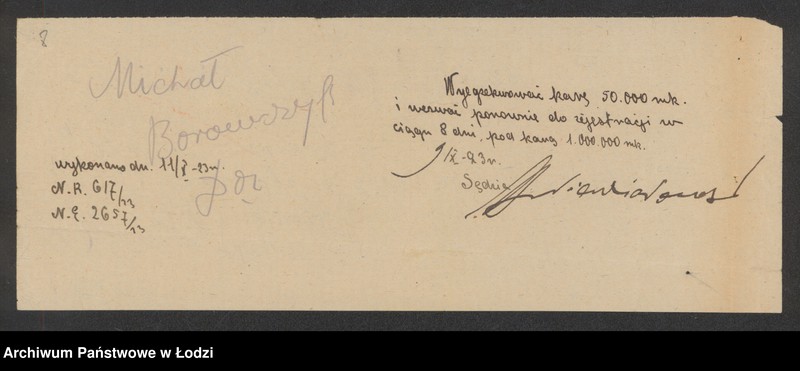 8
Michał
Borowczyk
wykonano dn. 11/X-23 r.
N.R. 617/23
N.E. 2657/23
Wyegzekwować karę 50.000 mk.
i wezwać ponownie do rejestracji w
ciągu 8 dni, pod karą 1.000.000 mk.
9/X-23 r.
Sędzia
Archiwum Państwowe w Łodzi